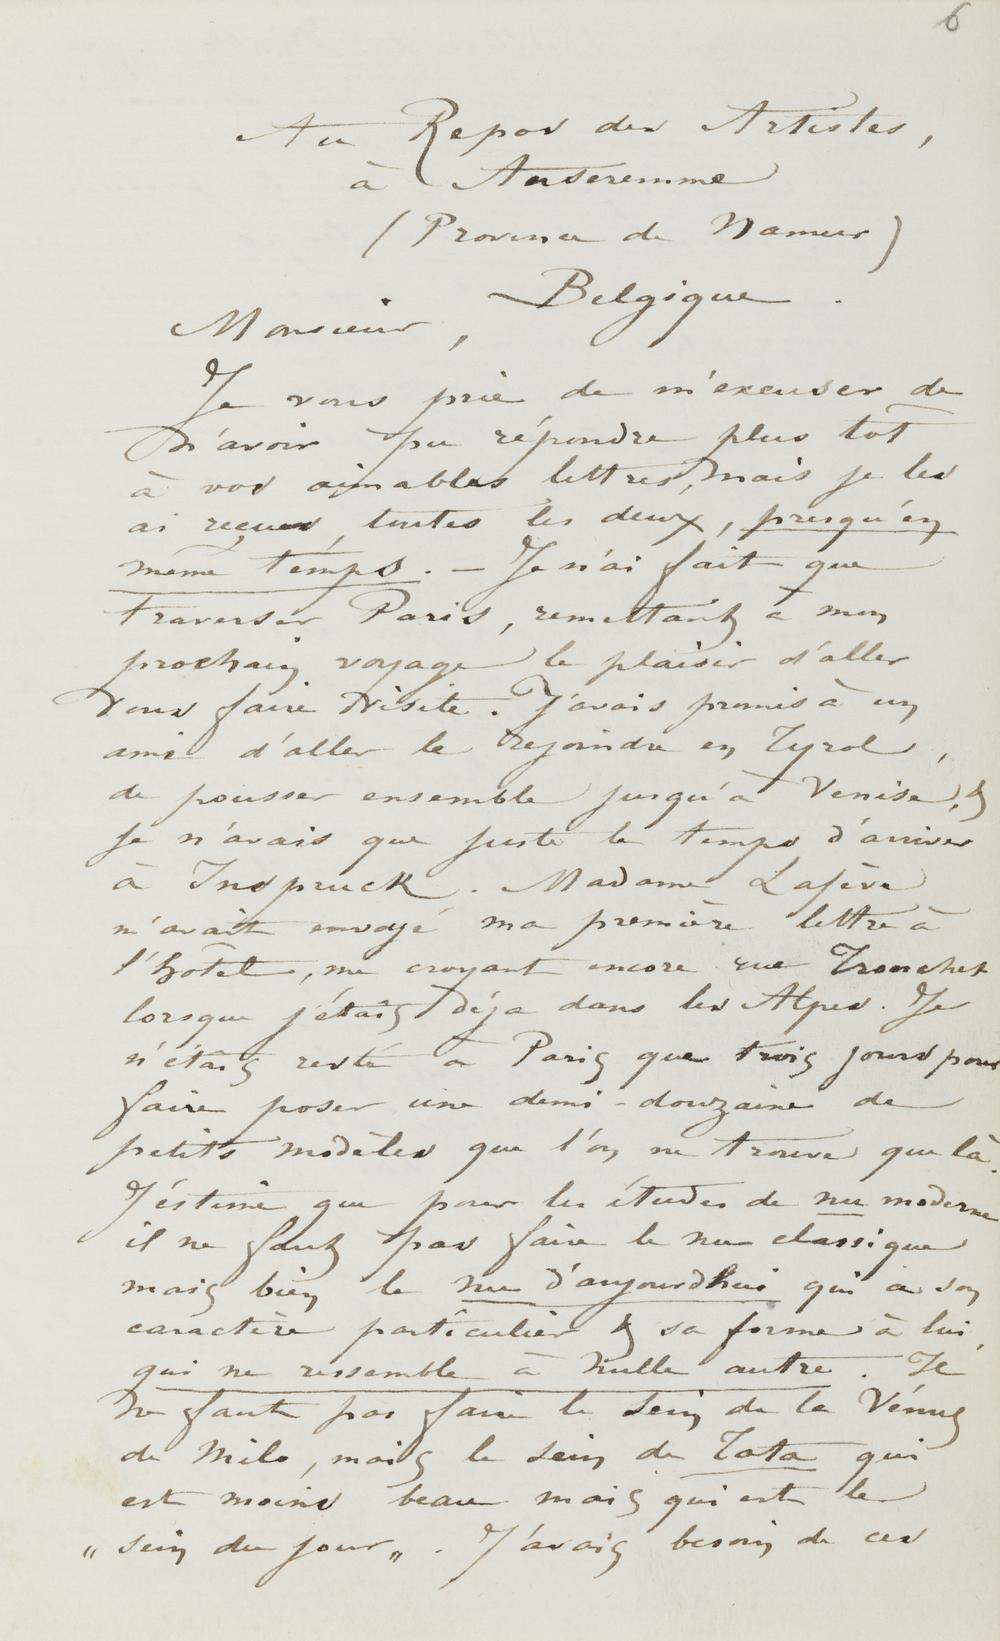 6
Au Repos des Artistes,
à Anseremme
(Province de Namur)
Belgique.
Monsieur,
Je vous prie de m'excuser de
n'avoir pu répondre plus tot
à vos aimables lettres, mais je les
ai reçues, toutes les deux, presqu'en
même temps. — Je n'ai fait que
traverser Paris, remettant à mon
prochain voyage le plaisir d'aller
vous faire visite. J'avais promis à un
ami d'aller le rejoindre en Tyrol,
de pousser ensemble jusqu'à Venise, &
je n'avais que juste le temps d'arriver
à Inspruck. Madame Lafève
m'avait envoyé ma première lettre à
l'hôtel, me croyant encore rue Tronchet
lorsque j'étais déja dans les Alpes. Je
n'étais resté à Paris que trois jours pour
faire poser une demi-douzaine de
petits modèles que l'on ne trouve que là.
J'éstime que pour les études de nu moderne
il ne faut pas faire le nu classique
mais bien le nu d'aujourd'hui qui a son
caractère particulier & sa forme à lui,
qui ne ressemble à nulle autre. Il
ne faut pas faire le sein de la Vénus
de Milo, mais le sein de Tata qui
est moins beau mais qui est le
„sein du jour„. J'avais besoin de ces